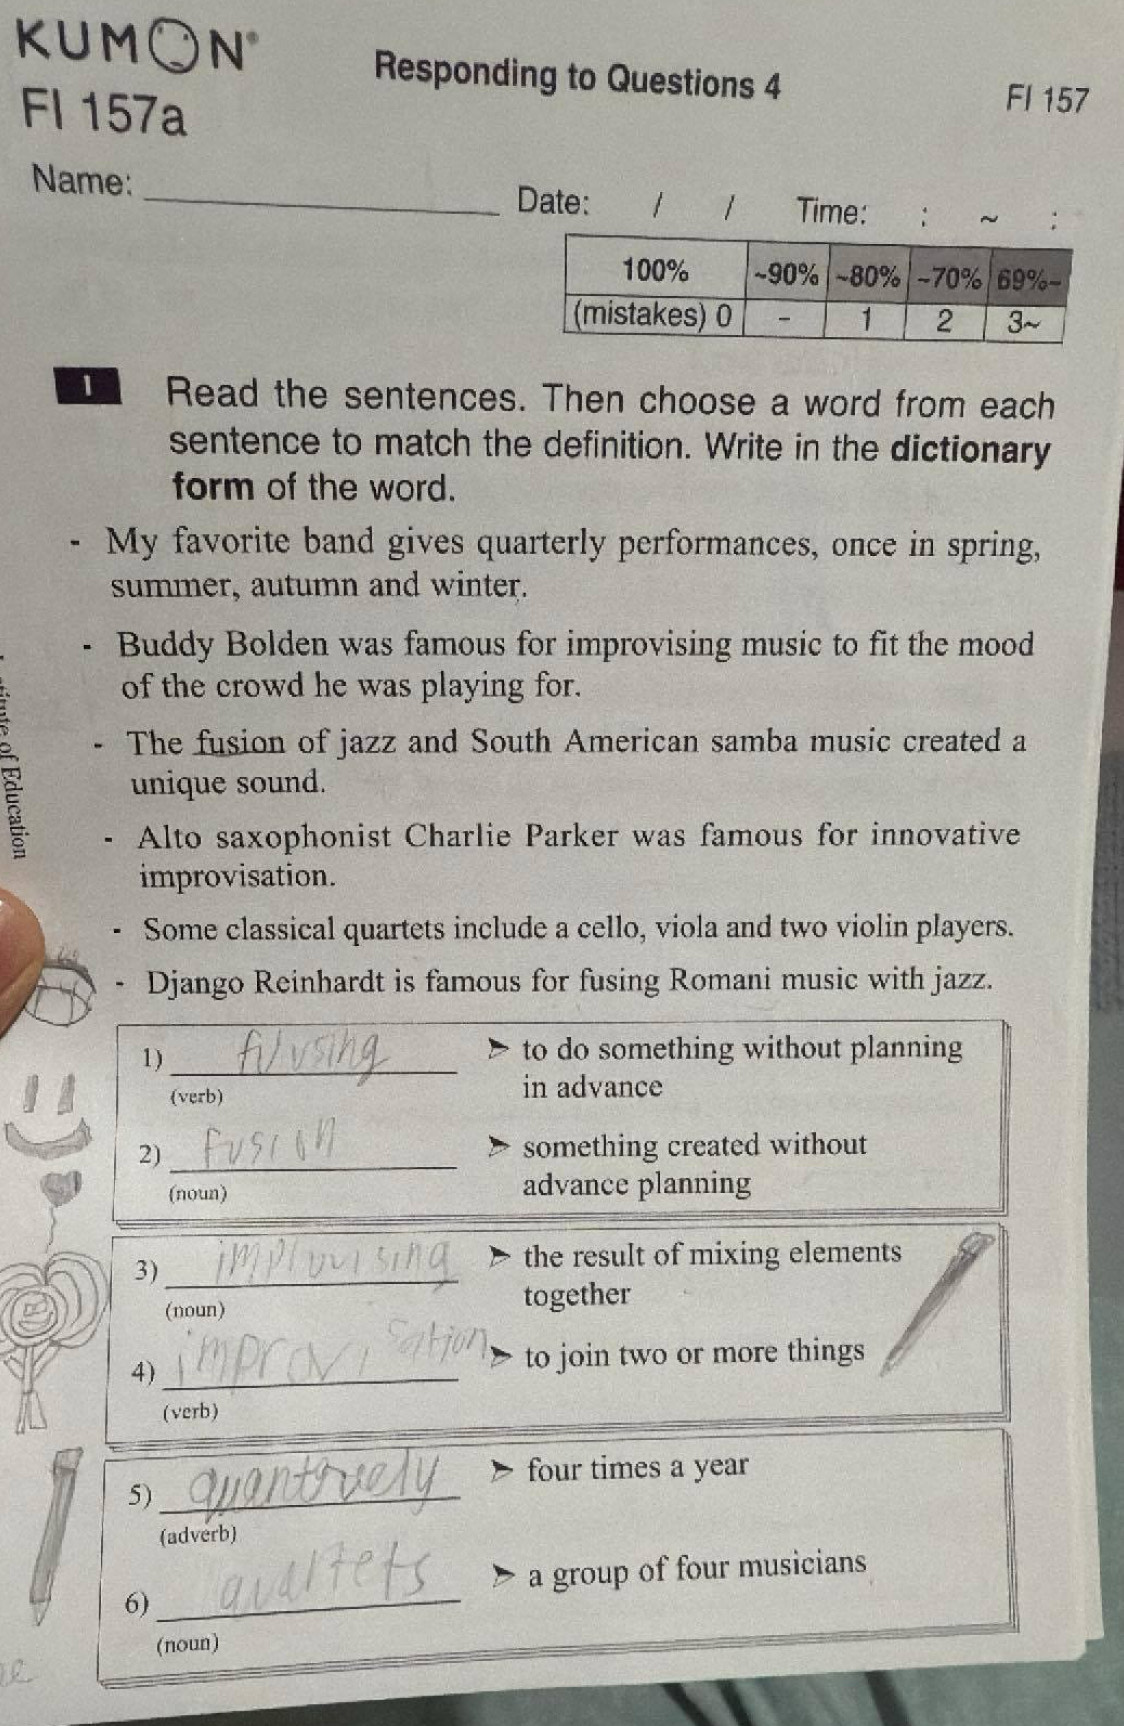 KUMON®
Responding to Questions 4
FI 157
FI 157a
Name:
Date: / / Time: : ~ :
100% ~90% ~80% ~70% 69%~
(mistakes) 0 - 1 2 3~
1 Read the sentences. Then choose a word from each
sentence to match the definition. Write in the dictionary
form of the word.
- My favorite band gives quarterly performances, once in spring,
summer, autumn and winter.
- Buddy Bolden was famous for improvising music to fit the mood
of the crowd he was playing for.
- The fusion of jazz and South American samba music created a
unique sound.
- Alto saxophonist Charlie Parker was famous for innovative
improvisation.
- Some classical quartets include a cello, viola and two violin players.
- Django Reinhardt is famous for fusing Romani music with jazz.
of Education
1) ➢ to do something without planning
(verb) in advance
2) fusion ➢ something created without
(noun) advance planning
3) ➢ the result of mixing elements
(noun) together
4) improvisation ➢ to join two or more things
(verb)
5) ➢ four times a year
(adverb)
6) quartets ➢ a group of four musicians
(noun)